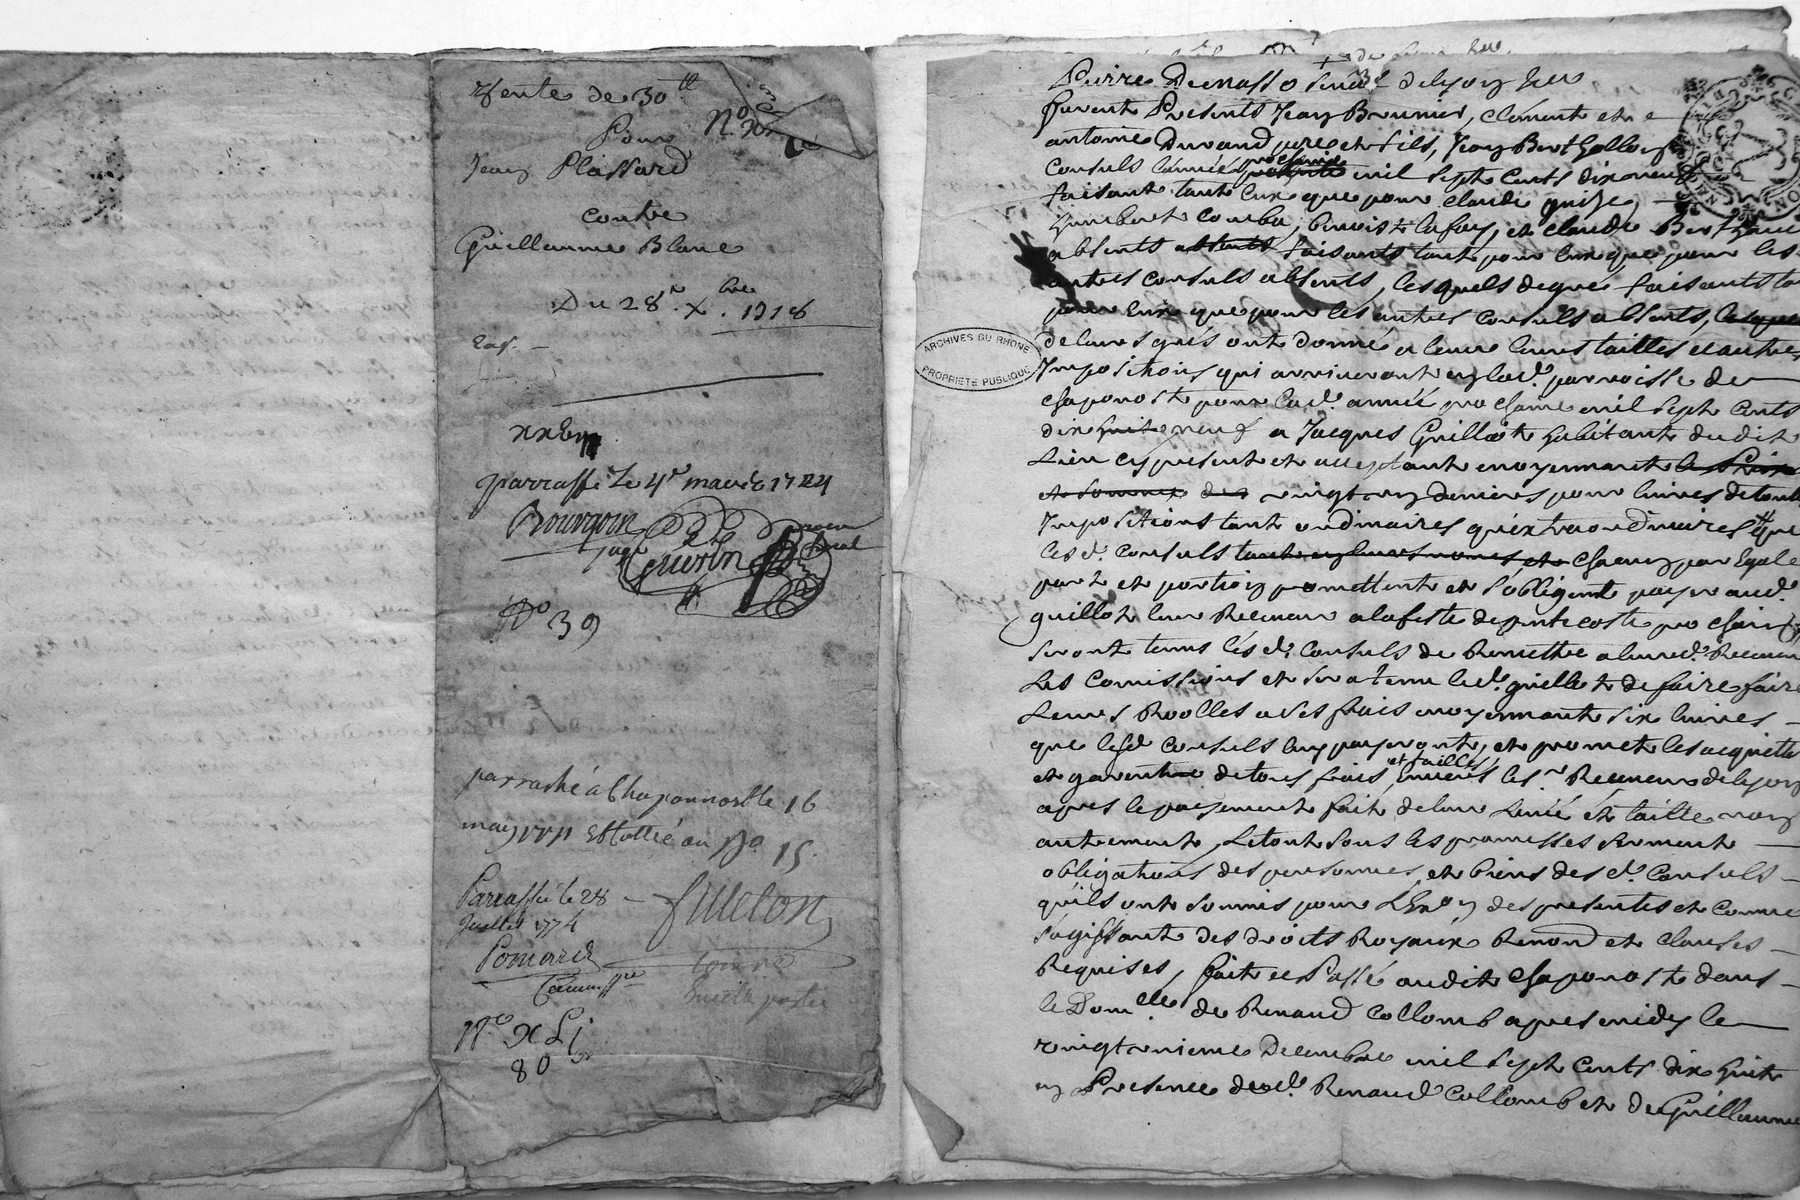 Vente de 30tt
N.o
Pour
Jean Plassard
contre
Guillaume Blanc
Du 28e Xbre 1718
parraffé le 4e mars 1724
Bourgoin
juge
Guerin
procu
fiscal
No 39
parraphé à Chaponnost le 16
may 1771 et cotté au No 15.
Parraffé le 28
Juillet 1774
fillelon
Pomard
Commissre
No XLj
80
ARCHIVES DU RHONE
PROPRIÉTÉ PUBLIQUE
furent Presents Jean Brunier, clement et
antoine Durand pere et fils, Jean Berthollon
Consuls l'année prochaine presente mil sept cents dix neuf
faisants tant eux que pour claude
Humbert Combu, benoist lafay, et claude Berthaud
absents absents faisants tant pour eux que pour les
autres consuls absents, lesquels de gre faisants ta
pour eux que pour les autres consuls absents, lesque
de leurs grés ont donné a lever leurs tailles et autres
Impositions qui arriveront en lad. parroisse de
chaponost pour lad. année prochaine mil sept cents
dix huit neuf a Jacques Guillot habitant dudit
Lieu cy present et acceptant moyennant le Prix
et somme des vingt un deniers pour livres de toutt
Impositions tant ordinaires qu'extraordinaires que
lesd. consuls tant en leurs noms et chacun par Egale
part et portion promettent et s'obligent payer aud.
guillot leur Receveur a la feste de pentecoste prochaine
seront tenus lesd. consuls de Remettre a leur d. Receveur
Les Comissions et sera tenu led. guillot de faire faire
Leurs Roolles a ses frais moyennant six livres
que lesd. consuls luy payeront, et promet les acquitter
et garentir de tous frais et tailles, Envers les rs Receveurs de lyon
apres le payement fait de leur et taille non
autrement, Le tout sous les promesses serment
obligations des personnes et biens des d. Consuls
qu'ils ont soumis pour L'Exon des presentes et comme
s'agissant des droits Royaux Renond et clauses
Requises, fait et Passé audit chaponost dans
le Domlle de Renaud Collomb apres midy le
vingt unieme Decembre mil sept cents dix huit
en Presence dud. Renaud Collomb et de Guillaume